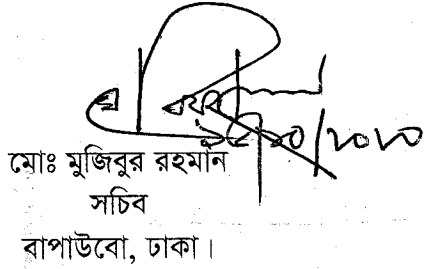 মোঃ মুজিবুর রহমান
সচিব
বাপাউবো, ঢাকা।